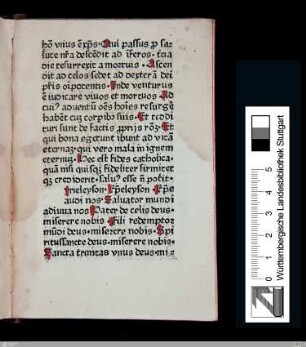 hō vnus ē xp̄s. Qui passus ꝓ sa-
lute nr̄a descēdit ad īferos. t̄cia
die resurrexit a mortuis. Ascen
dit ad celos sedet ad dexterā dei
pr̄is oīpotentis. Inde venturus
ē iudicare viuos et mortuos Ad
cuiꝰ aduentū oēs hoīes resurgē
habēt cū corpibꝰ suis. Et reddi
turi sunt de factis ꝓprijs rōnē. Et
qui bona egerunt ibunt ad vitā
eternaꝫ. qui vero mala in ignem
eternuꝫ. Hec est fides catholica.
quā nisi quisqꝫ fideliter firmiter
qꝫ crediderit. saluꝰ esse nō poterit.
Kyrieleyson Xp̄eleyson. Xp̄e
audi nos Saluator mundi
adiuua nos Pater de celis deus.
miserere nobis Fili redemptor
mūdi deus. miserere nobis. Spi
ritussancte deus. miserere nobis.
Sancta trinitas vnus deus. mi-
0 1 2 3 4 5
Württembergische Landesbibliothek Stuttgart